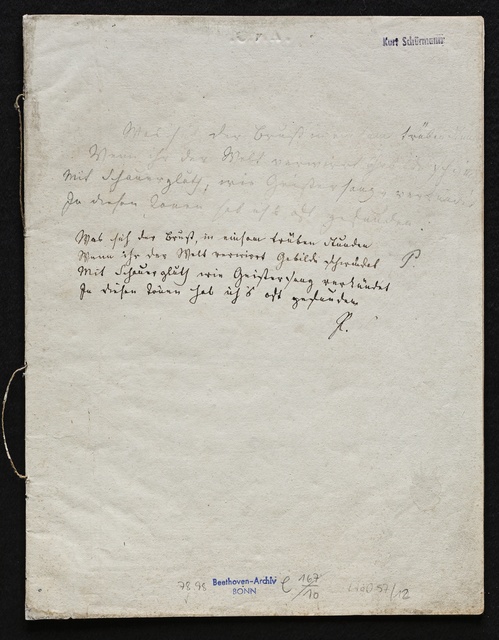 Kurt Schürmann
Was der Brust trüben
Wenn ihr der Welt verwirrt
Mit Schauergluth, wie Geistersang verkündet
In diesen Tönen hab ich's oft gefunden.
Was sich der Brust, in einsam trüben Stunden
Wenn ihr der Welt verwirrt Gebilde schwindet
Mit Schauergluth wie Geistersang verkündet
In diesen Tönen hab ich's oft gefunden
78.98
Beethoven-Archiv
BONN
C 167/10